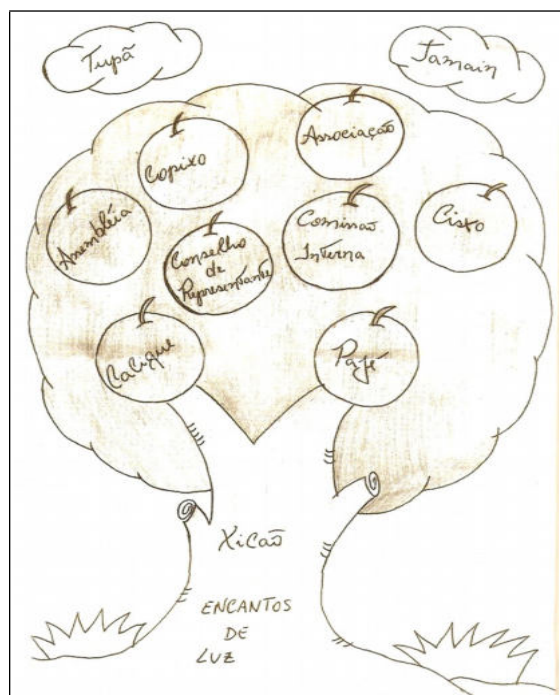 Tupã
Jamain
Associação
Copixo
Assembléia
Conselho
de
Representante
Comissão
Interna
Cisxo
Cacique
Pajé
Xicão
ENCANTOS
DE
LUZ